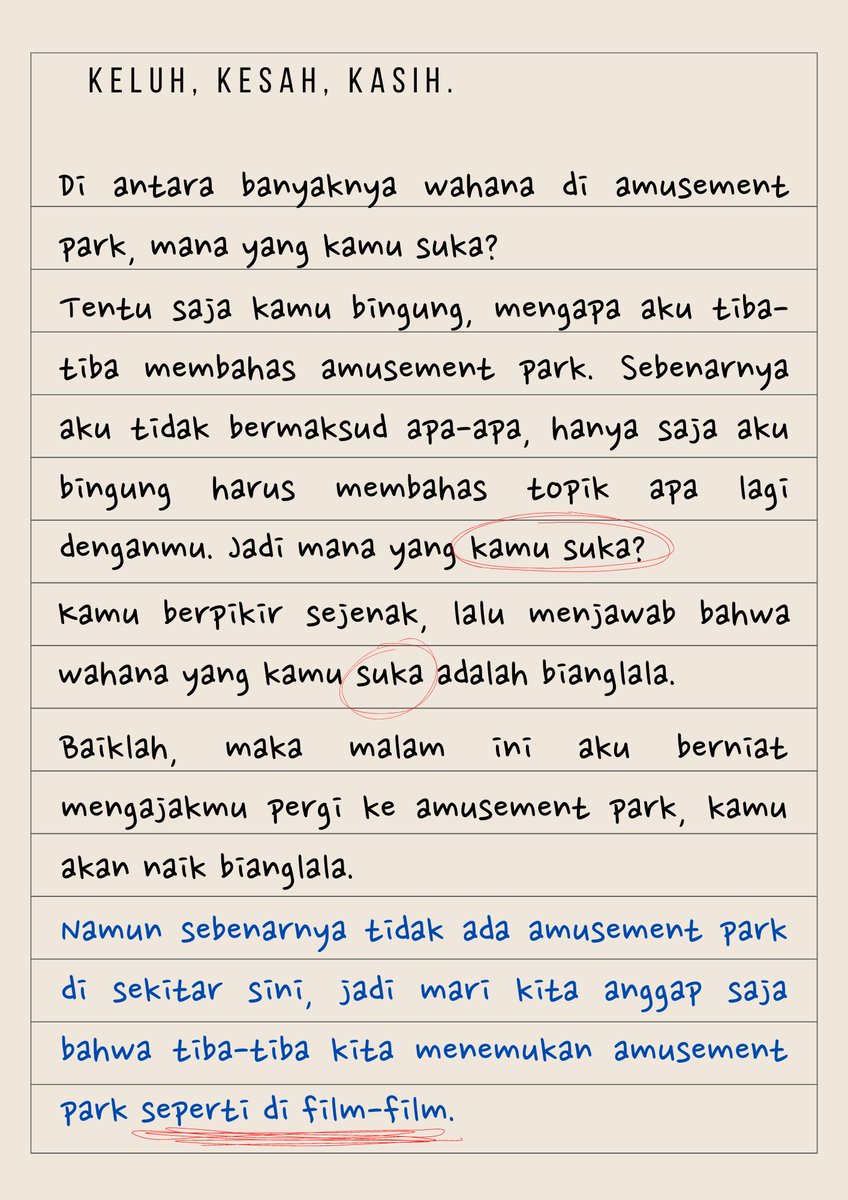 KELUH, KESAH, KASIH.
Di antara banyaknya wahana di amusement
park, mana yang kamu suka?
Tentu saja kamu bingung, mengapa aku tiba-
tiba membahas amusement park. Sebenarnya
aku tidak bermaksud apa-apa, hanya saja aku
bingung harus membahas topik apa lagi
denganmu. Jadi mana yang kamu suka?
Kamu berpikir sejenak, lalu menjawab bahwa
wahana yang kamu suka adalah bianglala.
Baiklah, maka malam ini aku berniat
mengajakmu pergi ke amusement park, kamu
akan naik bianglala.
Namun sebenarnya tidak ada amusement park
di sekitar sini, jadi mari kita anggap saja
bahwa tiba-tiba kita menemukan amusement
park seperti di film-film.